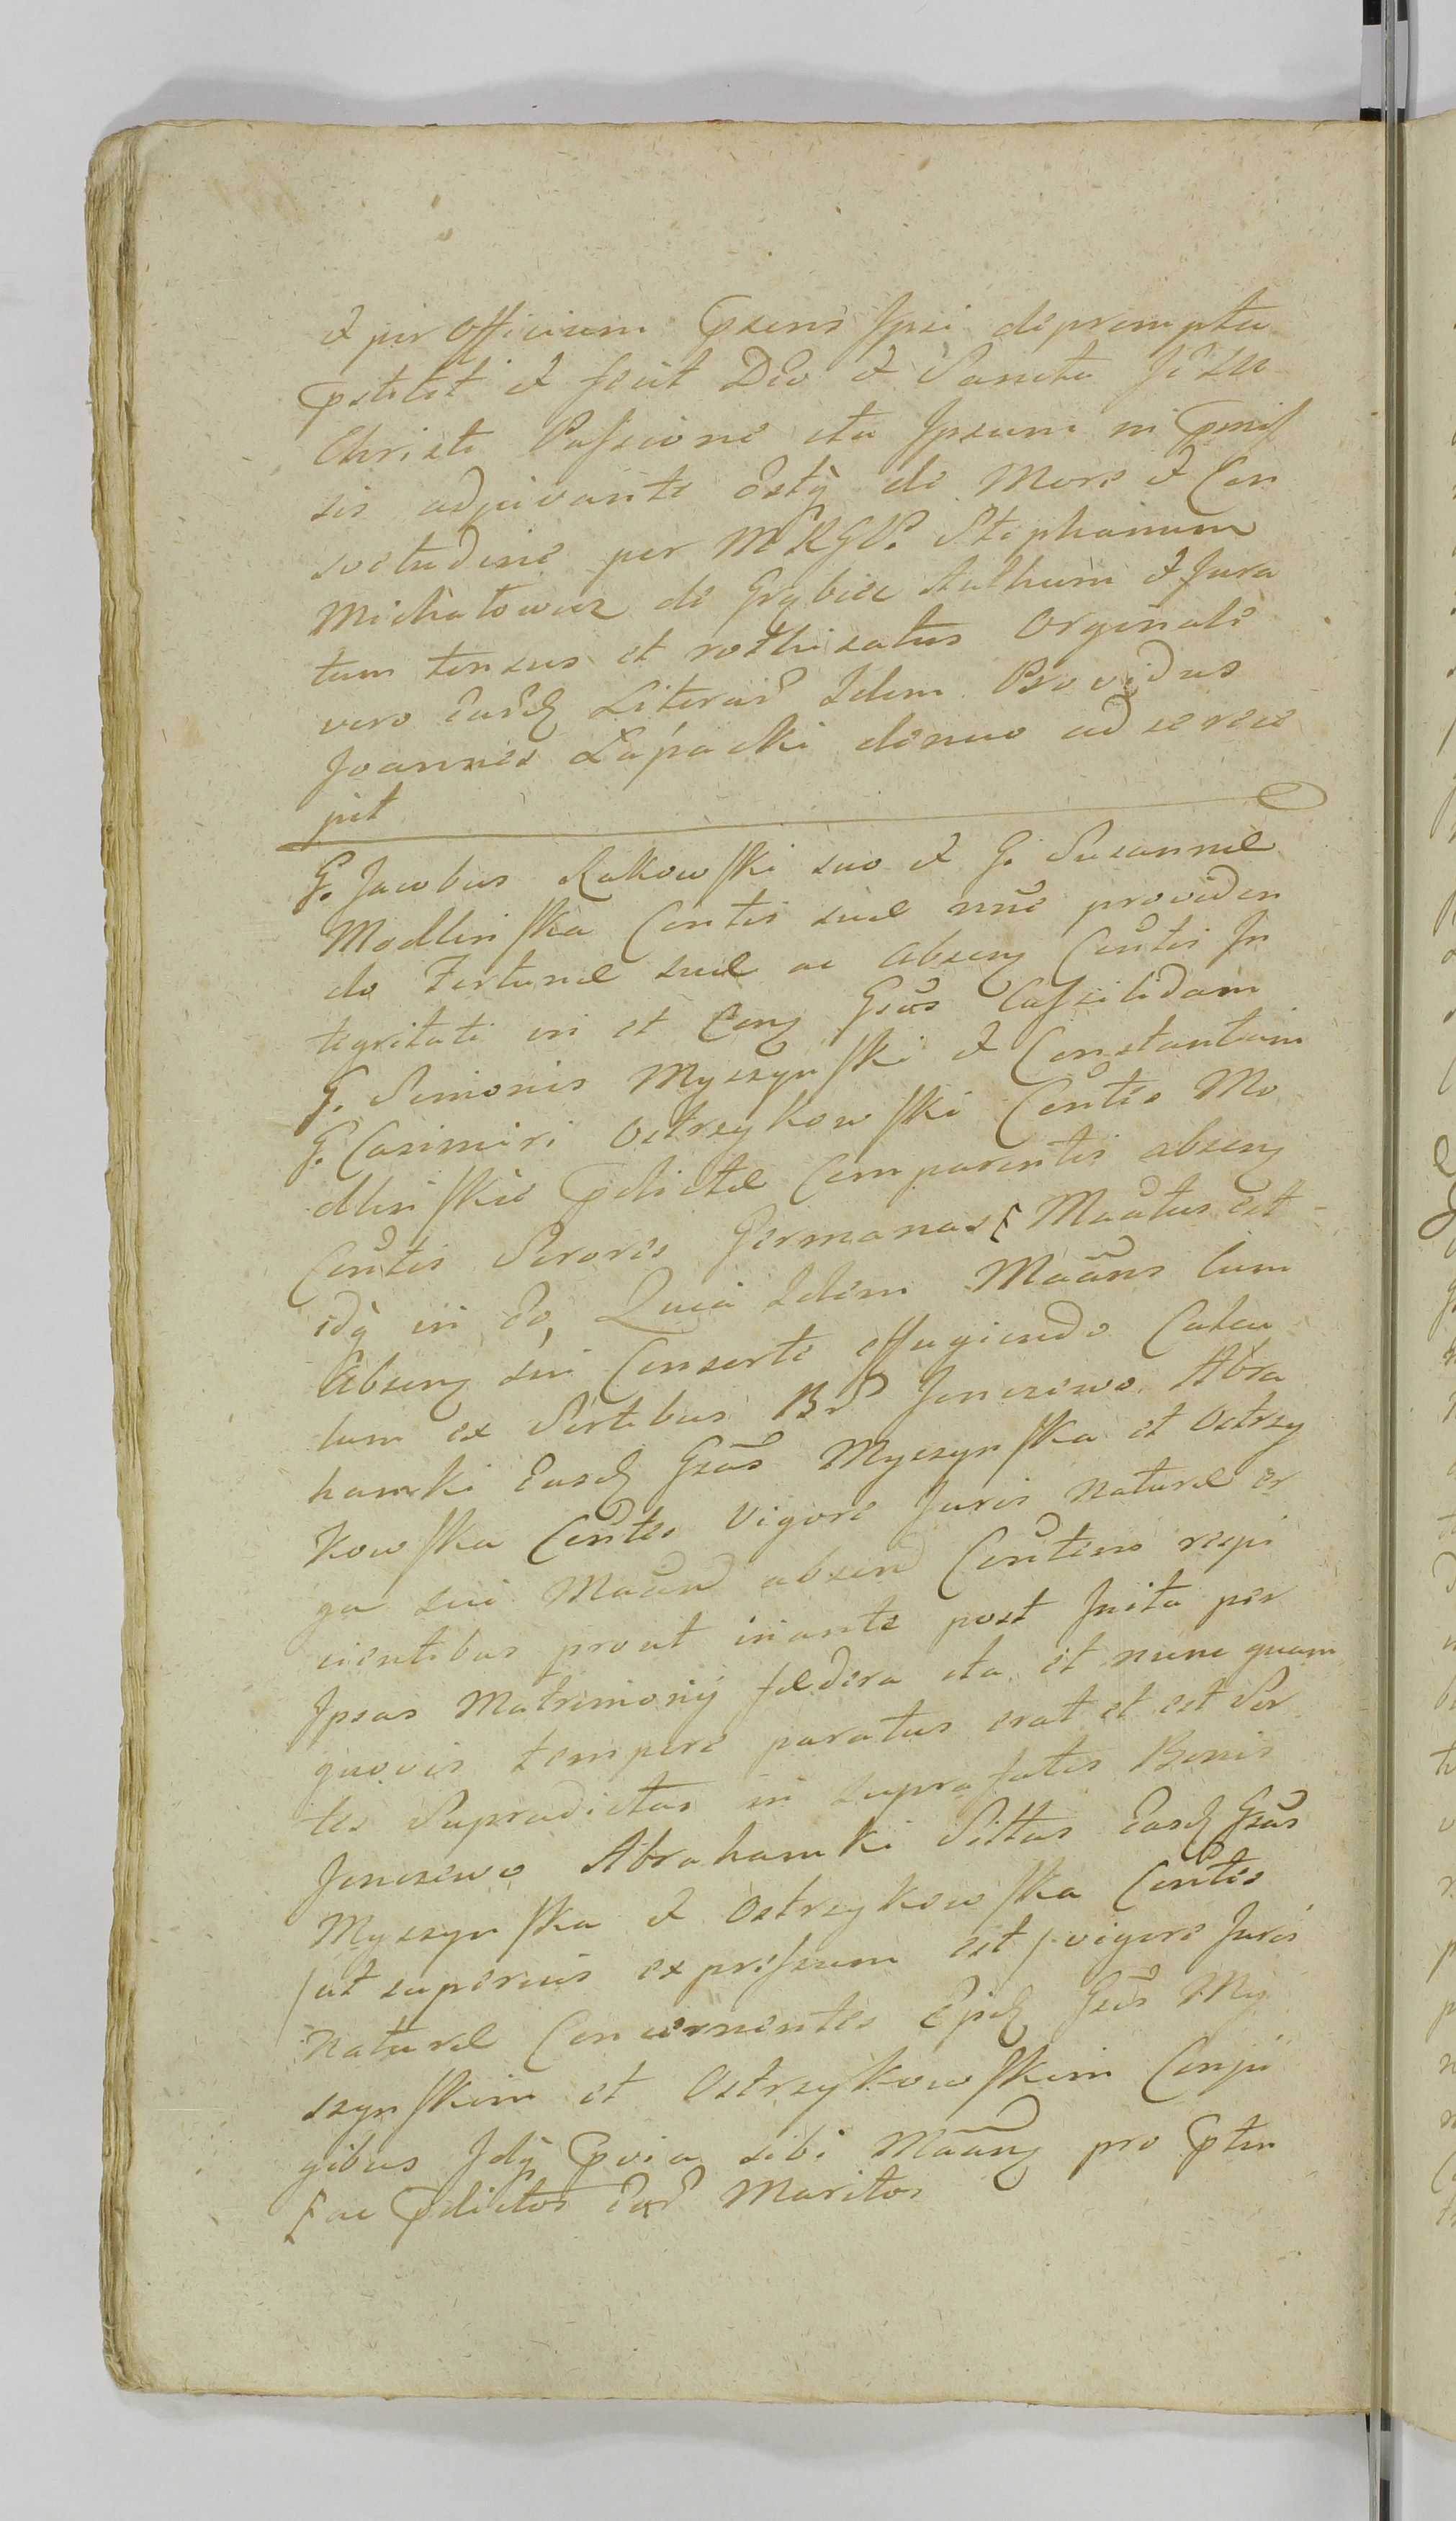 et per Officium Psens Ipsi depromptu
Pstitit et fecit Deo et Sancta Jesu
Christi Passione ita Ipsum in Pmis
sis adjuvante Estq de More et Con
svetudine per MRGP. Stephanum
Michałowicz de Grąbiec Authum et Jura
tum tensus et rothisatus Orginale
vero Easd Literas Idem Providus
Joannes Łapacki denuo ad se rece
pit
G. Jacobus Rakowski suo et G. Susannae
Modlinska Contis suae nne providen
do Fortunae suae ac absenz Contis In
tegritati in et Conz Gsas Cassildam
G. Simonis Myszynski et Constantiam
G. Casimiri Ostrzykowski Contes Mo
dlinskie Pdictae Comparentis absenz
Contis Sorores Germanas Maatus est
idq in Eo, Quia Idem Maans cum
Absenz sui Consorte effugiendo Calcu
lum ex Sortibus Br Jenczewo Abra
hamki Easd Gsas Myszynska et Ostrzy
kowska Contes vigore Juris Naturae er
ga sui Maand absend Contem respi
cientibus prout inante post Inita per
Ipsas Matrimonij faedera ita et nunc quam
quovis tempore paratus erat et est Sor
tes Supradictas in suprafatis Bonis
Jenczewo Abrahamki Sittas Easd Gsas
Myszynska et Ostrzykowska Contes
/ut superius expressum est/ vigore Juris
Naturae Concernentes Epid Gsis My
szynskim et Ostrzykowskim Conju
gibus Idq Pvia sibi Maanz pro Ptin
ac Pdictos Ear Maritos